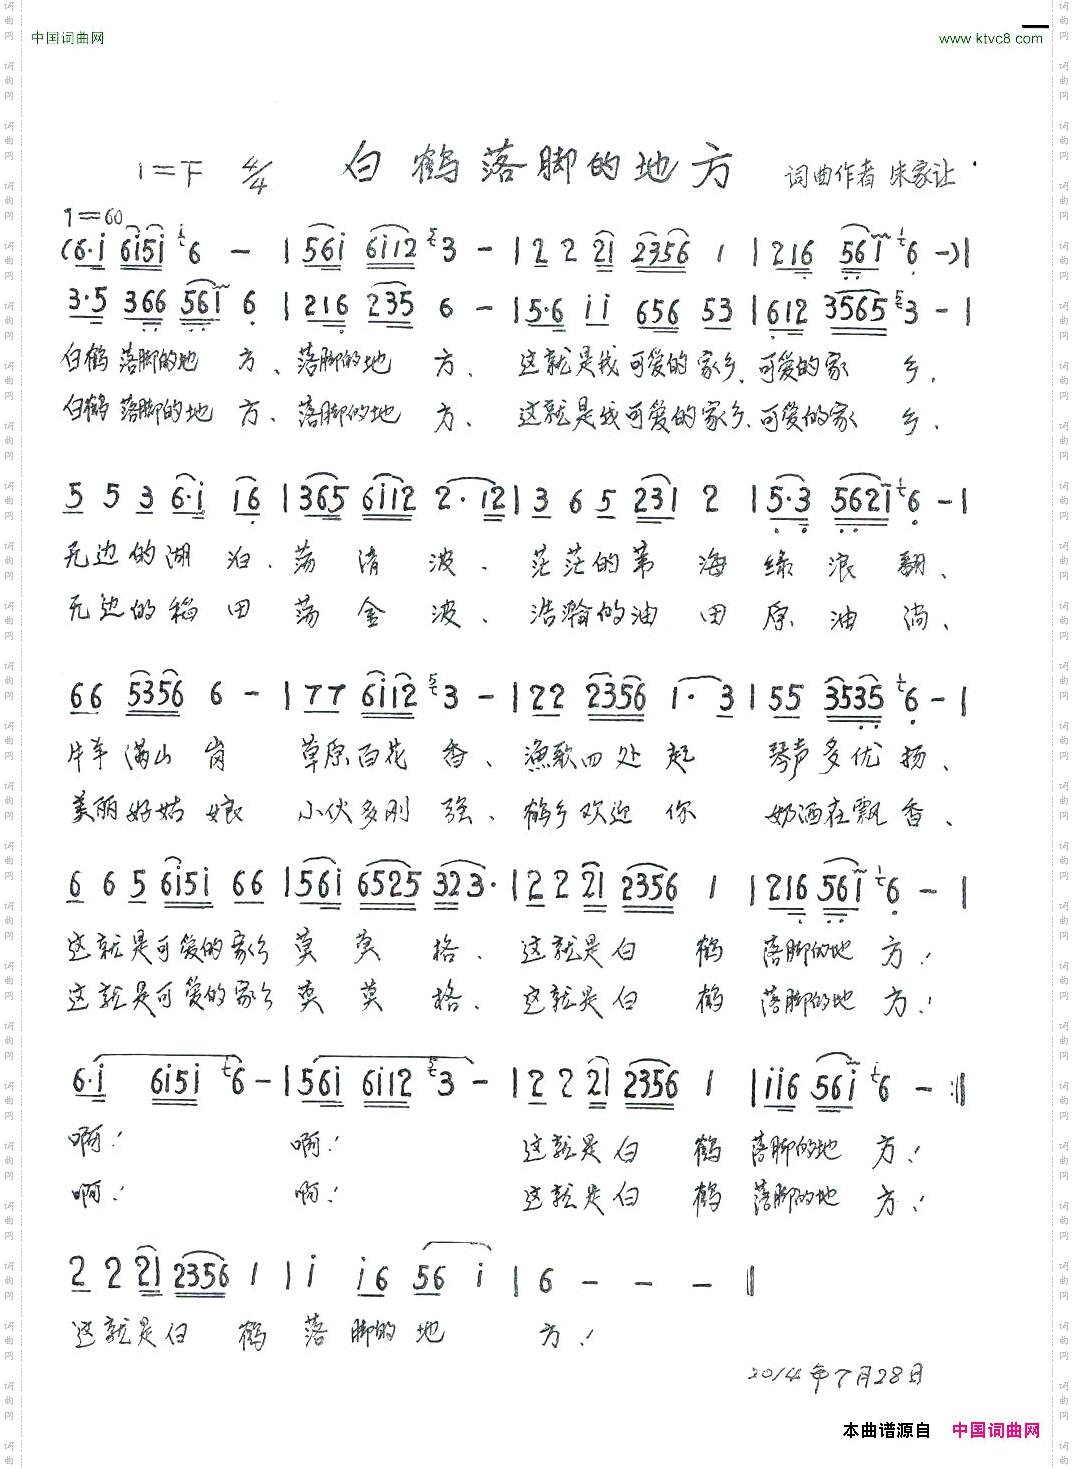 中国词曲网
www.ktvc8.com
1=F 4/4 白鹤落脚的地方 词曲作者 朱家让
1=60
(6·i 6i5i 6 - | 56i 6i12 3 - | 2 2 21 2356 1 | 216 561 6 -)|
3·5 366 561 6 | 216 235 6 - | 5·6 ii 656 53 | 612 3565 3 - |
白鹤落脚的地方、落脚的地方、这就是我可爱的家乡、可爱的家乡.
白鹤落脚的地方、落脚的地方、这就是我可爱的家乡、可爱的家乡.
5 5 3 6·i i6 | 365 6i12 2·12 | 3 6 5 231 2 | 5·3 5621 6 - |
无边的湖泊.荡清波、茫茫的苇海绿浪翻、
无边的稻田荡金波、浩瀚的油田原油淌、
66 5356 6 - | 77 6i12 3 - | 22 2356 1·3 | 55 3535 6 - |
牛羊满山岗 草原百花香、渔歌四处起 琴声多优扬、
美丽好姑娘 小伙多刚强、鹤乡欢迎你 奶酒在飘香、
6 6 5 6i5i 66 | 56i 6525 323· | 2 2 21 2356 1 | 216 561 6 - |
这就是可爱的家乡莫莫格、这就是白鹤落脚的地方!
这就是可爱的家乡莫莫格、这就是白鹤落脚的地方!
6·i 6i5i 6 - | 56i 6i12 3 - | 2 2 21 2356 1 | ii6 56i 6 - :||
啊! 啊! 这就是白鹤落脚的地方!
啊! 啊! 这就是白鹤落脚的地方!
2 2 21 2356 1 | i i6 56 i | 6 - - - ||
这就是白鹤落脚的地方!
2014年7月28日
本曲谱源自 中国词曲网